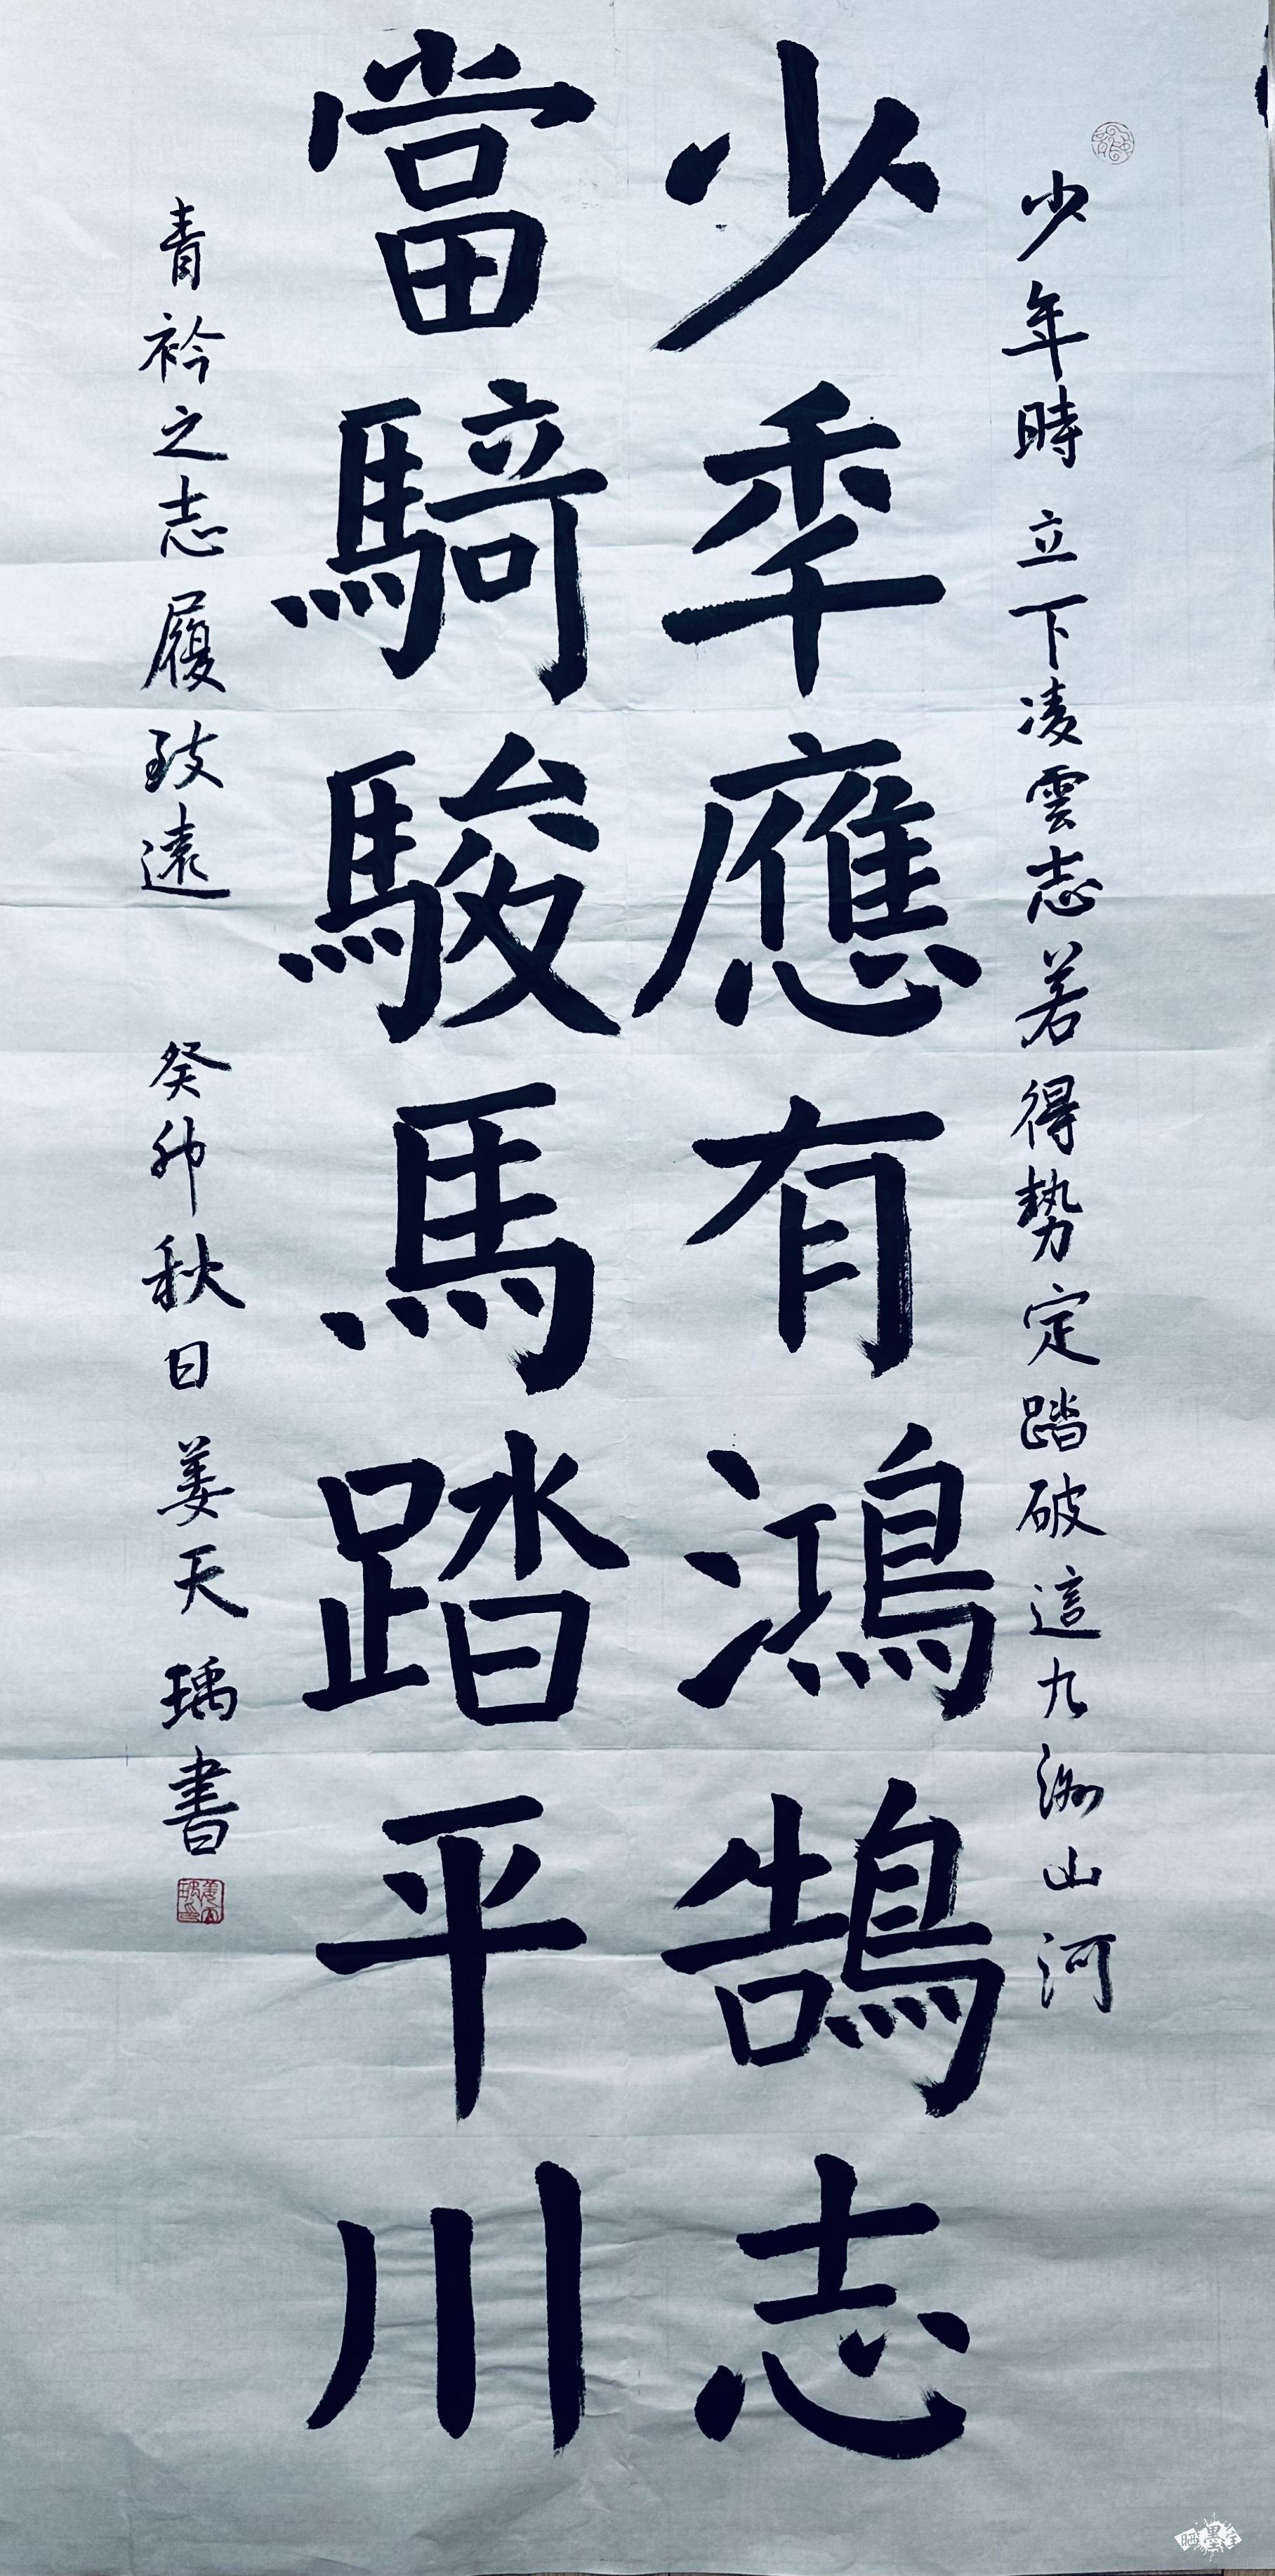 少年時立下凌雲志若得勢定踏破這九洲山河
少秊應有鴻鵠志
當騎駿馬踏平川
青衿之志履致遠
癸卯秋日姜天瑀書